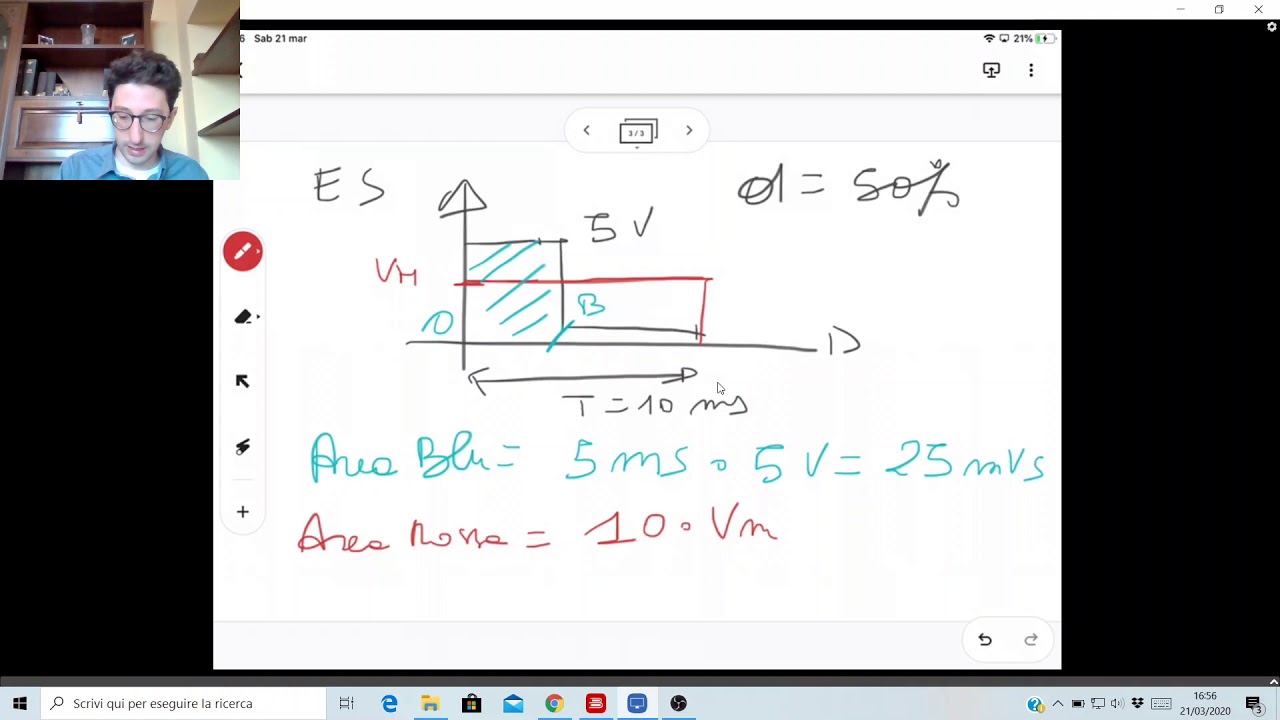 6 Sab 21 mar
21%
3 / 3
ES
d = 50%
5 V
VM
B
O
T = 10 ms
Area Blu = 5 ms · 5 V = 25 mVs
Area Rossa = 10 · Vm
Scrivi qui per eseguire la ricerca
16:56
21/03/2020
3